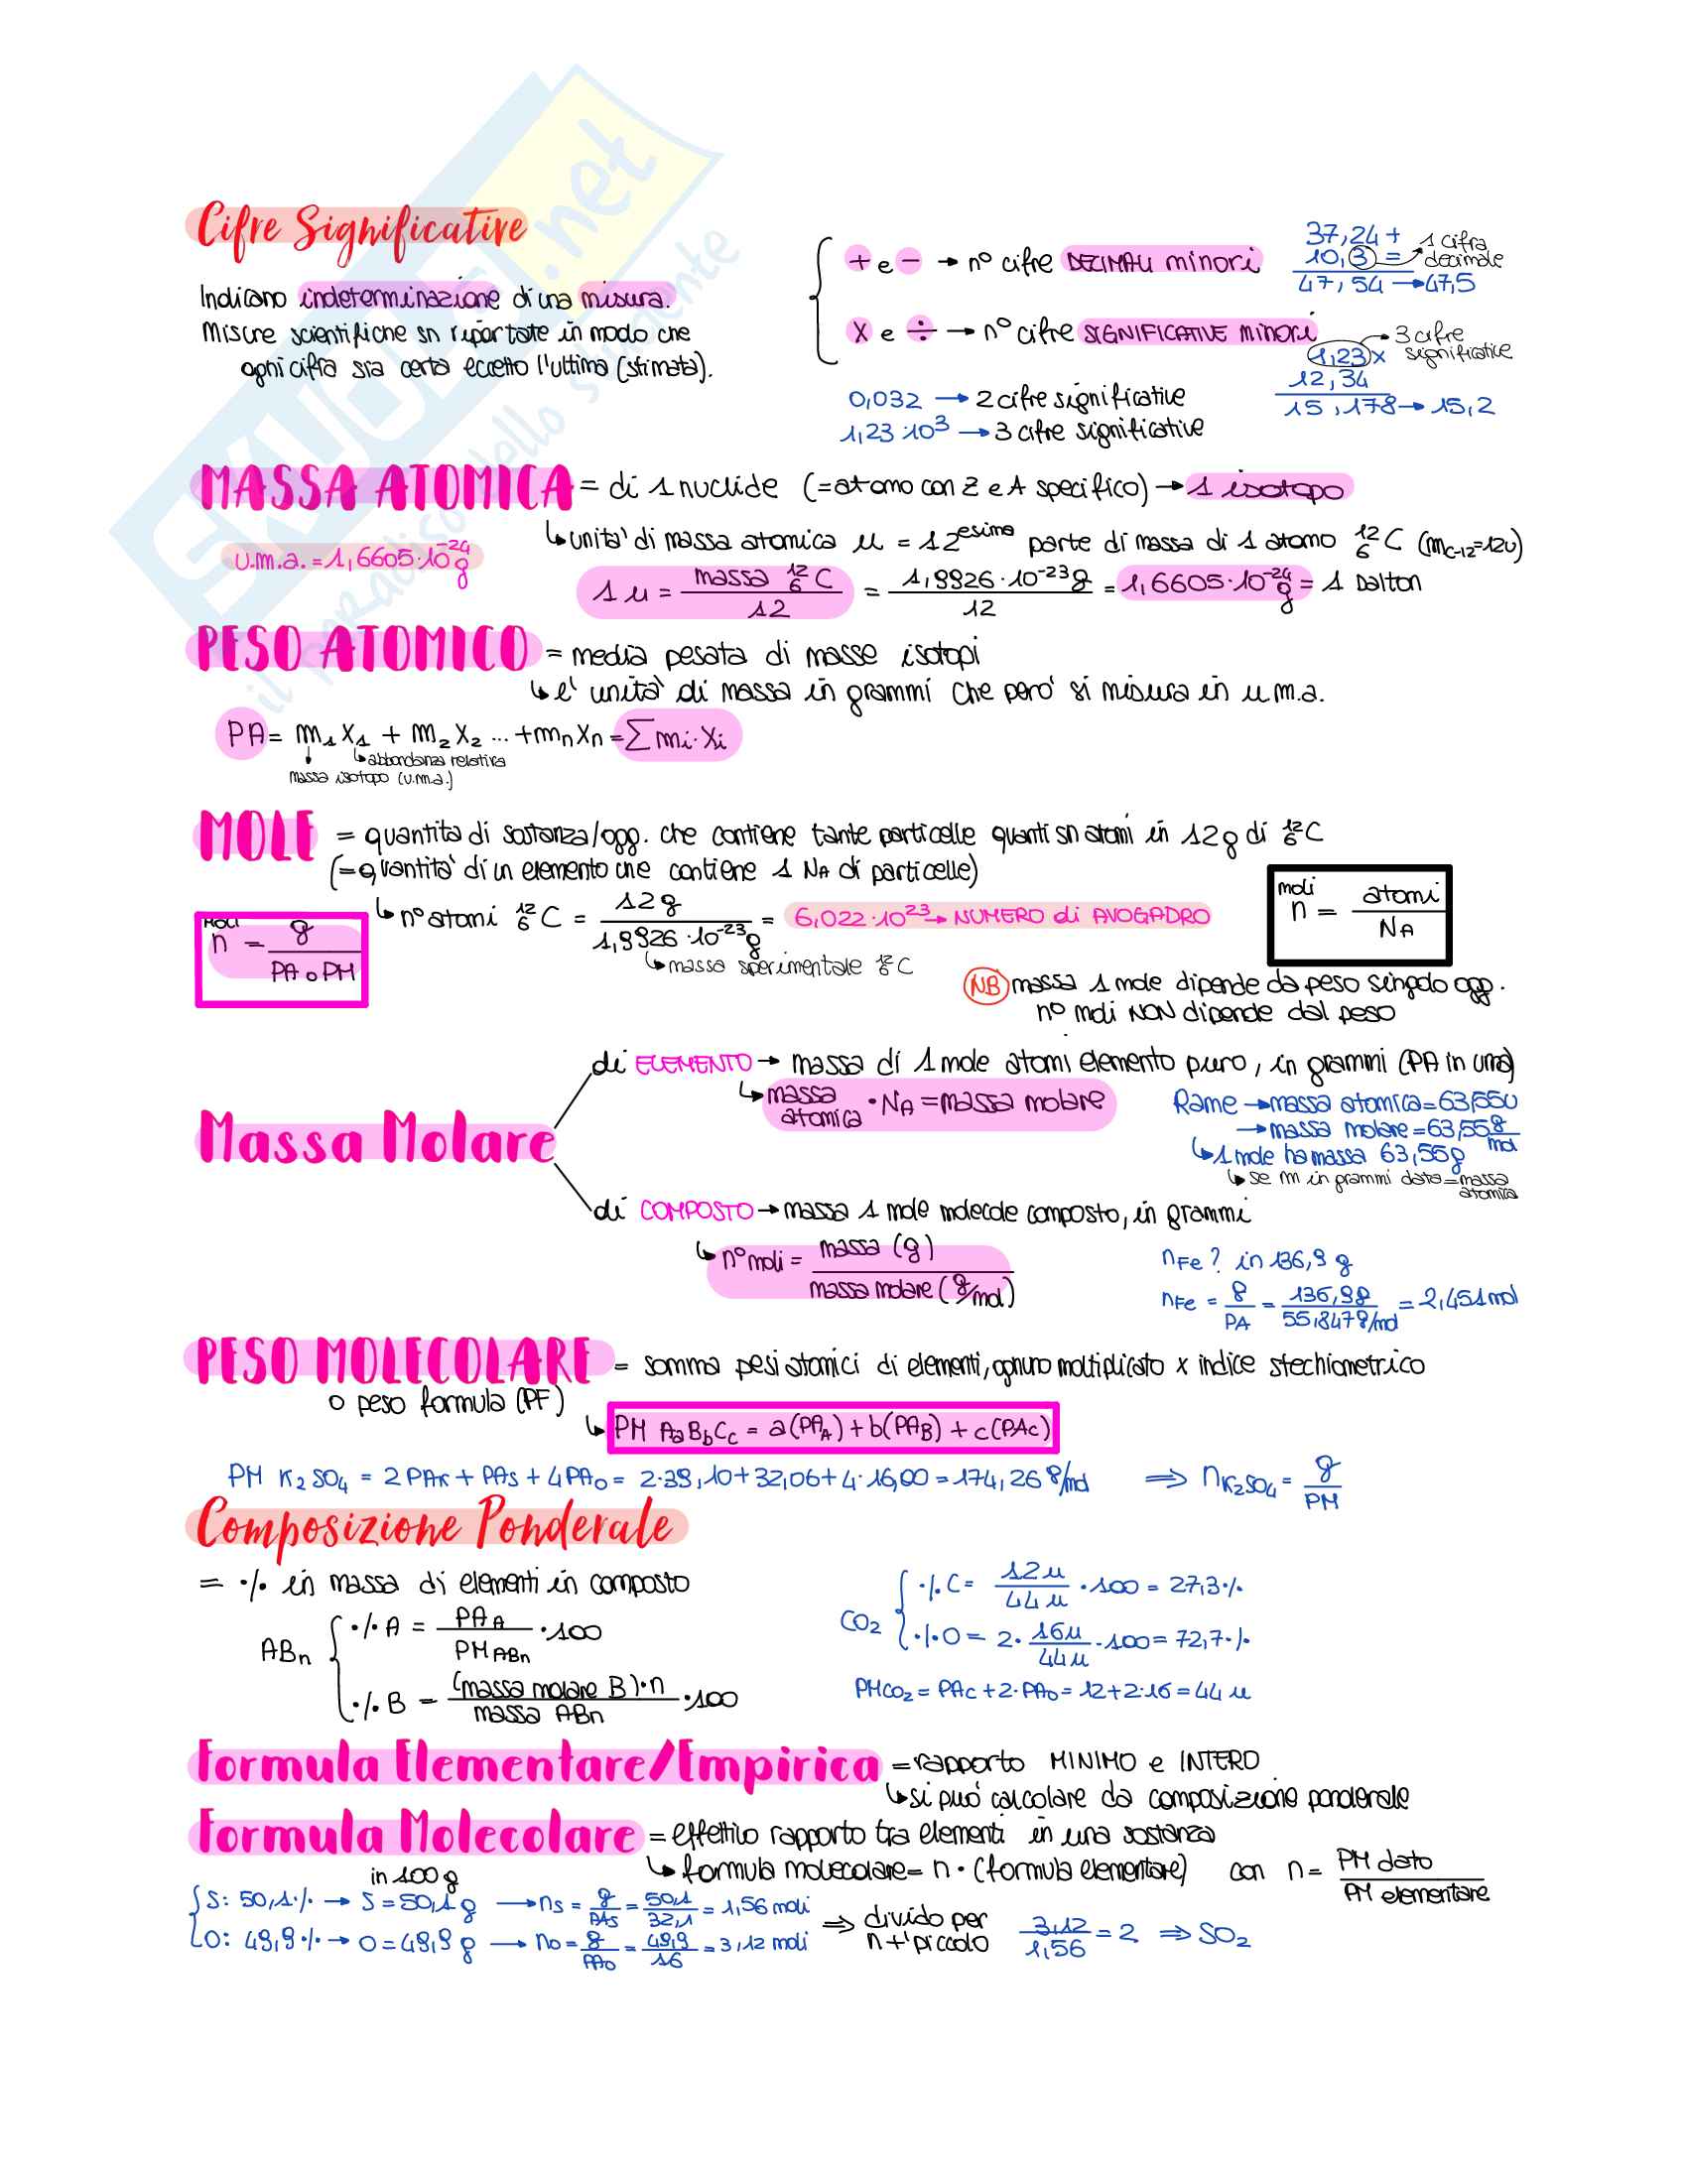 SKUOLA.net
il paradiso dello studente
Cifre Significative
Indicano indeterminazione di una misura.
Misure scientifiche sn riportate in modo che
ogni cifra sia certa eccetto l'ultima (stimata).
+ e - → n° cifre DECIMALI minori
x e ÷ → n° cifre SIGNIFICATIVE minori
0,032 → 2 cifre significative
1,23·10³ → 3 cifre significative
37,24 +
10,3 = → 1 cifra decimale
47,54 → 47,5
1,23 x → 3 cifre significative
12,34
15,178 → 15,2
MASSA ATOMICA = di 1 nuclide (=atomo con Z e A specifico) → 1 isotopo
↳ unità di massa atomica u = 12esima parte di massa di 1 atomo ¹²₆C (mC-12=12u)
u.m.a. = 1,6605·10⁻²⁴g
1 u = massa ¹²₆C / 12 = 1,9926·10⁻²³g / 12 = 1,6605·10⁻²⁴g = 1 Dalton
PESO ATOMICO = media pesata di masse isotopi
↳ e' unità di massa in grammi che però si misura in u.m.a.
PA = m₁x₁ + m₂x₂ ... + mnxn = Σ mi·xi
↳ abbondanza relativa
massa isotopo (u.m.a.)
MOLE = quantità di sostanza/ogg. che contiene tante particelle quanti sn atomi in 12g di ¹²₆C
(=quantità di un elemento che contiene 1 NA di particelle)
↳ n° atomi ¹²₆C = 12g / 1,9926·10⁻²³g = 6,022·10²³ → NUMERO di AVOGADRO
↳ massa sperimentale ¹²₆C
moli n = g / PA o PM
moli n = atomi / NA
NB massa 1 mole dipende da peso singolo ogg.
n° moli NON dipende dal peso
Massa Molare
di ELEMENTO → massa di 1 mole atomi elemento puro, in grammi (PA in uma)
↳ massa atomica · NA = massa molare
Rame → massa atomica = 63,55u
→ massa molare = 63,55 g/mol
↳ 1 mole ha massa 63,55g
↳ se m in grammi data = massa atomica
di COMPOSTO → massa 1 mole molecole composto, in grammi
↳ n° moli = massa (g) / massa molare (g/mol)
nFe ? in 136,9 g
nFe = g / PA = 136,9g / 55,847g/mol = 2,451 mol
PESO MOLECOLARE = somma pesi atomici di elementi, ognuno moltiplicato x indice stechiometrico
o peso formula (PF)
↳ PM AaBbCc = a(PAA) + b(PAB) + c(PAC)
PM K₂SO₄ = 2PAK + PAS + 4PAO = 2·39,10+32,06+4·16,00 = 174,26 g/mol ⇒ nK₂SO₄ = g / PM
Composizione Ponderale
= ·/. in massa di elementi in composto
ABn
·/. A = PAA / PMABn ·100
·/. B = (massa molare B)·n / massa ABn ·100
CO₂
·/. C = 12u / 44u ·100 = 27,3·/.
·/. O = 2· 16u / 44u ·100 = 72,7·/.
PMCO₂ = PAC + 2·PAO = 12+2·16 = 44 u
Formula Elementare/Empirica = rapporto MINIMO e INTERO
↳ si può calcolare da composizione ponderale
Formula Molecolare = effettivo rapporto tra elementi in una sostanza
↳ formula molecolare = n·(formula elementare) con n = PM dato / PM elementare
in 100g
S: 50,1·/. → S = 50,1 g → nS = g / PAS = 50,1 / 32,1 = 1,56 moli
O: 49,9·/. → O = 49,9 g → nO = g / PAO = 49,9 / 16 = 3,12 moli
⇒ divido per n + piccolo 3,12 / 1,56 = 2 ⇒ SO₂